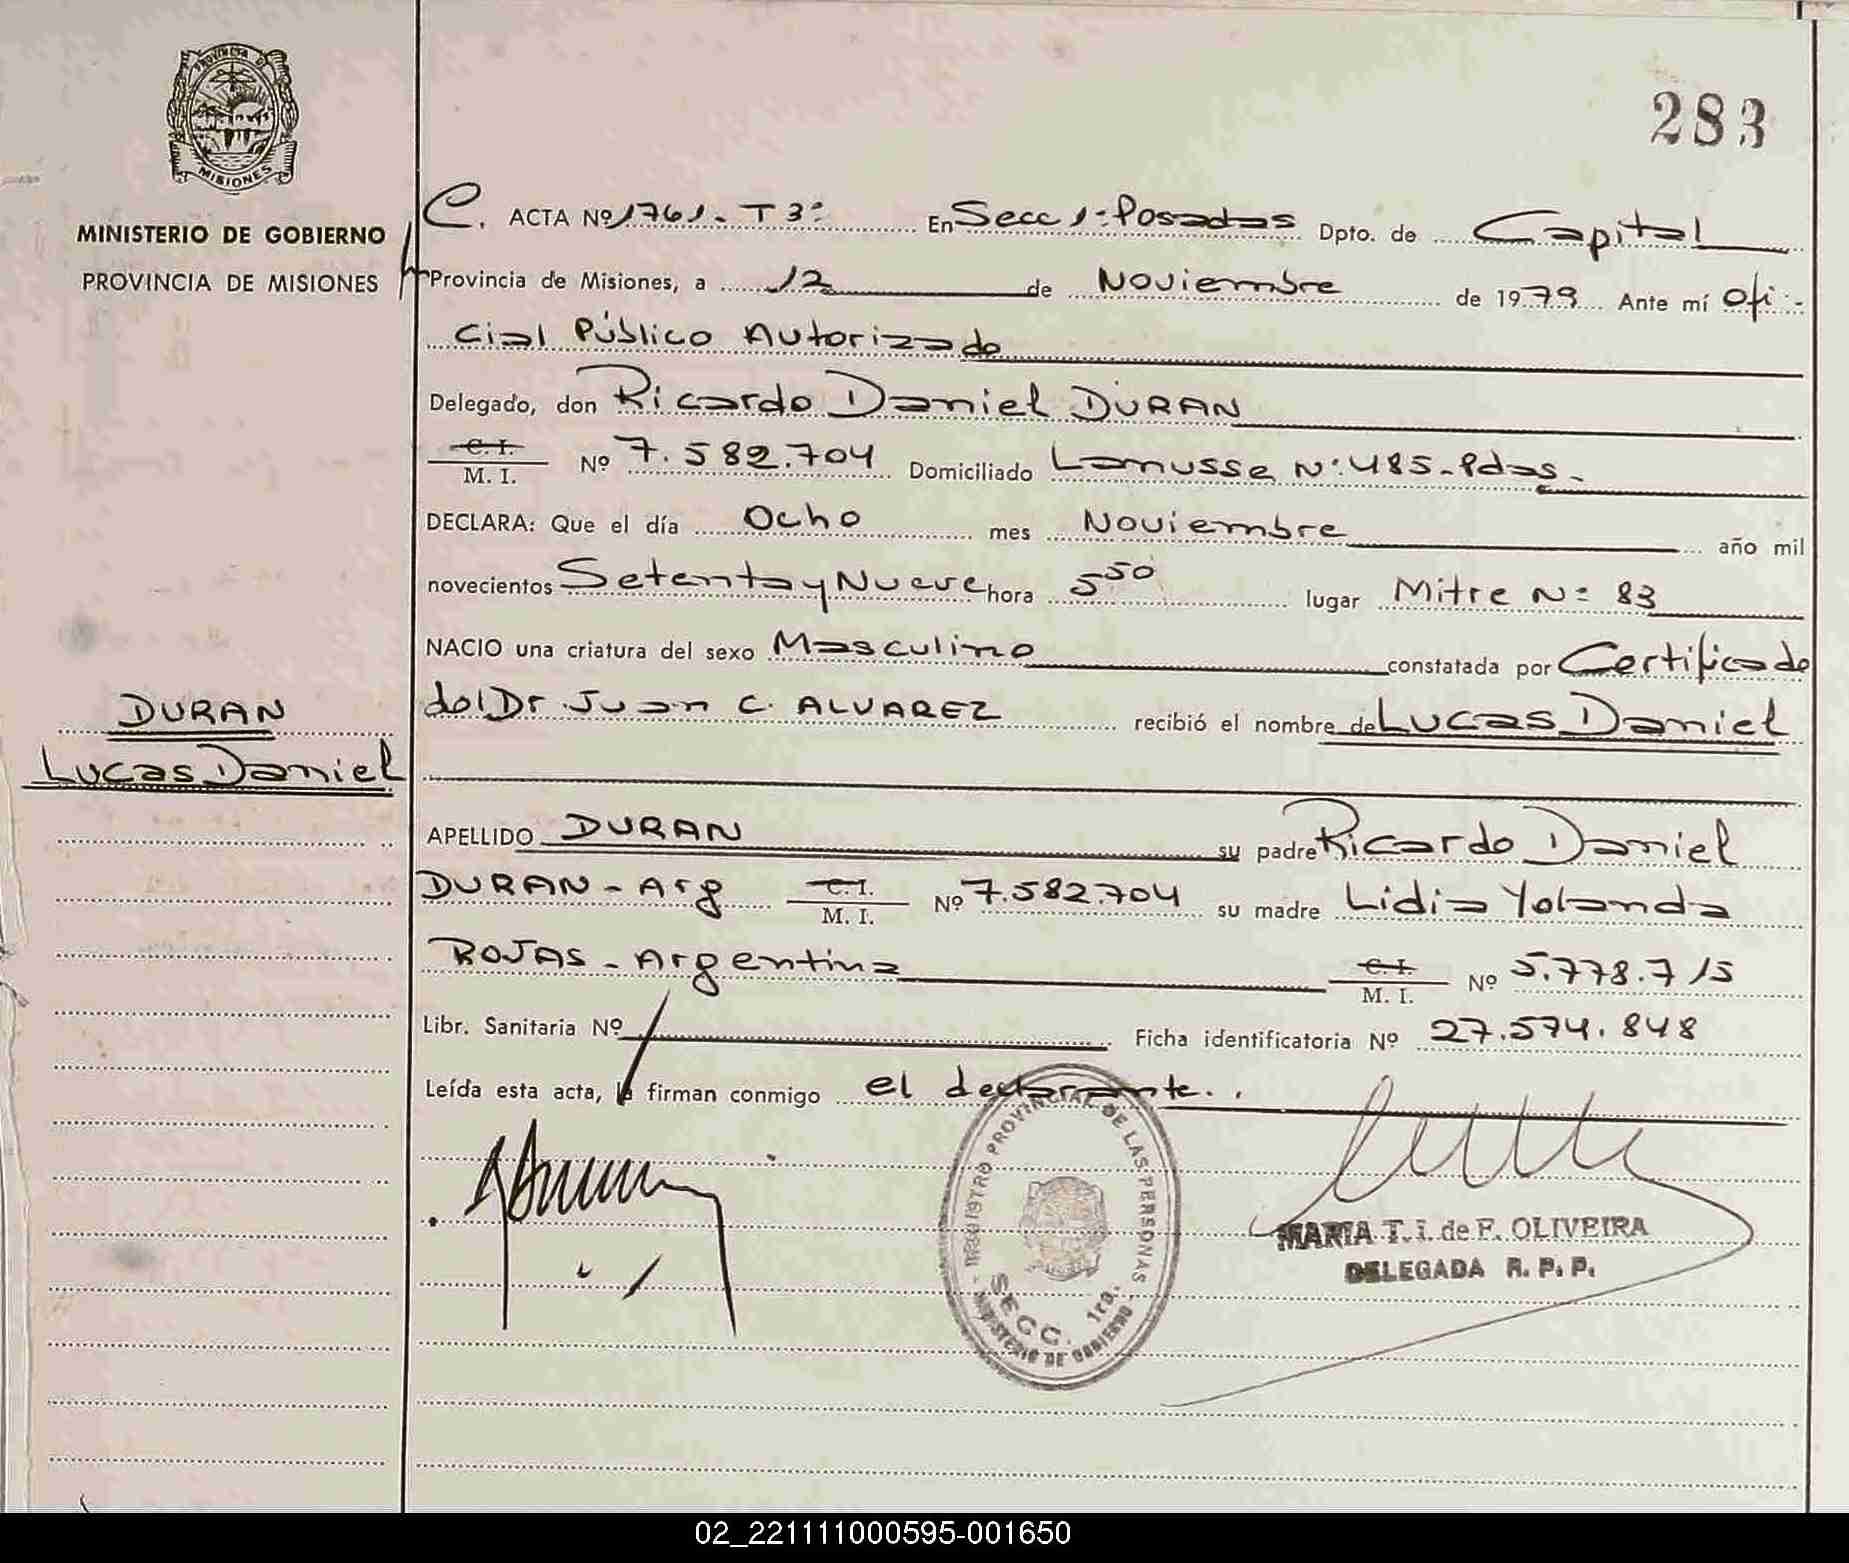 PROVINCIA DE
MISIONES
MINISTERIO DE GOBIERNO
PROVINCIA DE MISIONES
DURAN
Lucas Daniel
283
C. ACTA Nº 1761 - T 3º En Secc 1ª Posadas Dpto. de Capital
Provincia de Misiones, a 12 de Noviembre de 1979 Ante mí Ofi-
cial Público Autorizado
Delegado, don Ricardo Daniel DURAN
C. I. / M. I. Nº 7.582.704 Domiciliado Lanusse Nº 485 - Pdas -
DECLARA: Que el día Ocho mes Noviembre año mil
novecientos Setenta y Nueve hora 5 50 lugar Mitre Nº 83
NACIO una criatura del sexo Masculino constatada por Certificado
del Dr Juan C. ALVAREZ recibió el nombre de Lucas Daniel
APELLIDO DURAN su padre Ricardo Daniel
DURAN - Arg C. I. / M. I. Nº 7.582.704 su madre Lidia Yolanda
ROJAS - Argentina C. I. / M. I. Nº 5.778.715
Libr. Sanitaria Nº Ficha identificatoria Nº 27.574.848
Leída esta acta, la firman conmigo el declarante.
REGISTRO PROVINCIAL DE LAS PERSONAS
SECC. 1ra.
MINISTERIO DE GOBIERNO
MARIA T. I. de F. OLIVEIRA
DELEGADA R. P. P.
02_221111000595-001650